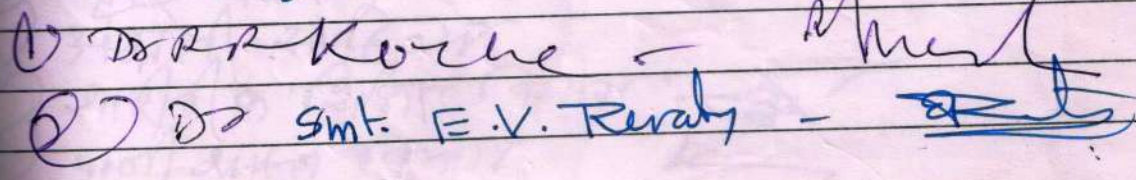 ① Dr R R Korche -
② Dr Smt. E.V. Revaty -